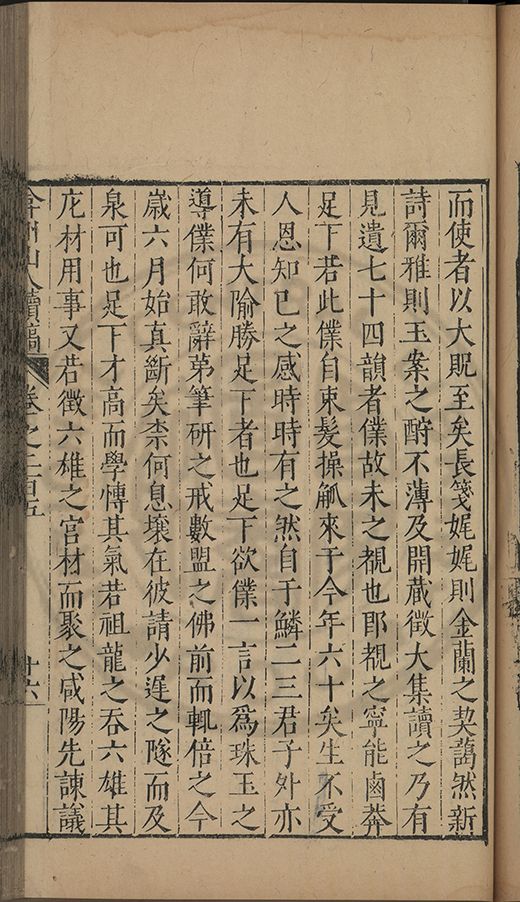 而使者以大貺至矣長箋娓娓則金蘭之契藹然新
詩爾雅則玉案之酧不薄及開蕆徵大集讀之乃有
見遺七十四韻者僕故未之覩也郎覩之寧能鹵莽
足下若此僕自束髮操觚來于今年六十矣生不受
人恩知己之感時時有之然自于鱗二三君子外亦
未有大隃勝足下者也足下欲僕一言以爲珠玉之
導僕何敢辭第筆硏之戒數盟之佛前而輒倍之今
歲六月始真斷矣柰何息壤在彼請少遲之隧而及
泉可也足下才高而學愽其氣若祖龍之吞六雄其
庀材用事又若徵六雄之宫材而聚之咸陽先諫議
弇州山人續稿
卷之二百五
十六